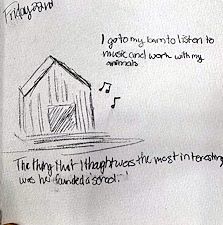 Friday 23rd
I go to my barn to listen to
music and work with my
animals
The thing that I thought was the most interesting
was he founded a school.